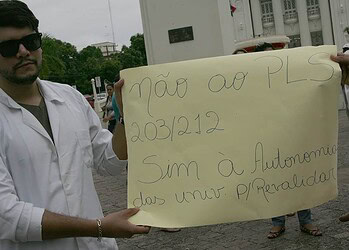 não ao PLS
203/212
Sim a Autonomia
das univ P/Revalidar